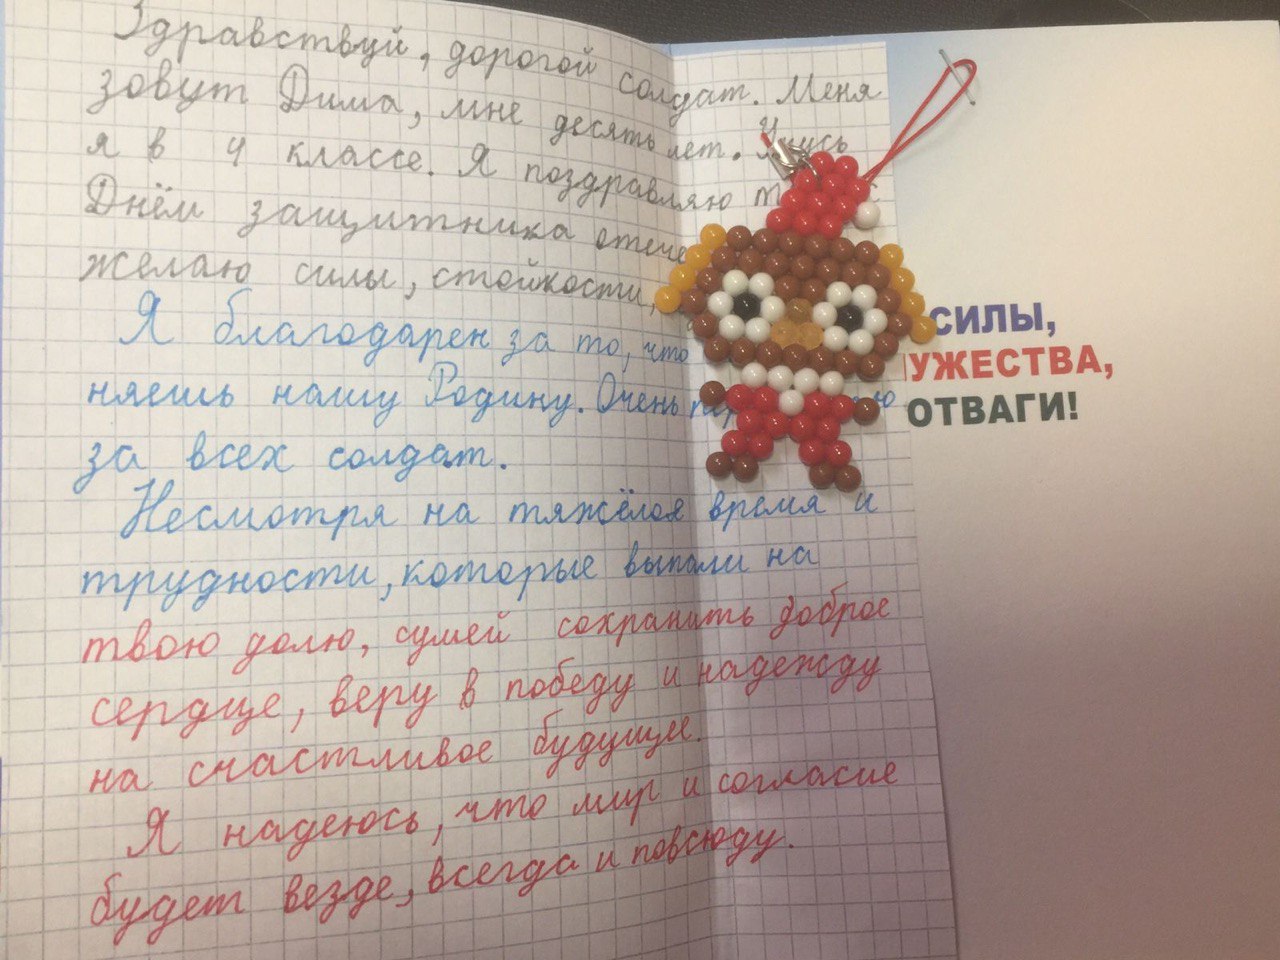 Здравствуй, дорогой солдат. Меня
зовут Дима, мне десять лет. Учусь
я в 4 классе. Я поздравляю
Днём защитника отече
желаю силы, стойкости,
Я благодарен за то, что
няешь нашу Родину. Очень
за всех солдат.
Несмотря на тяжёлое время и
трудности, которые выпали на
твою долю, сумей сохранить доброе
сердце, веру в победу и надежду
на счастливое будущее.
Я надеюсь, что мир и согласие
будет везде, всегда и повсюду.
СИЛЫ,
УЖЕСТВА,
ОТВАГИ!